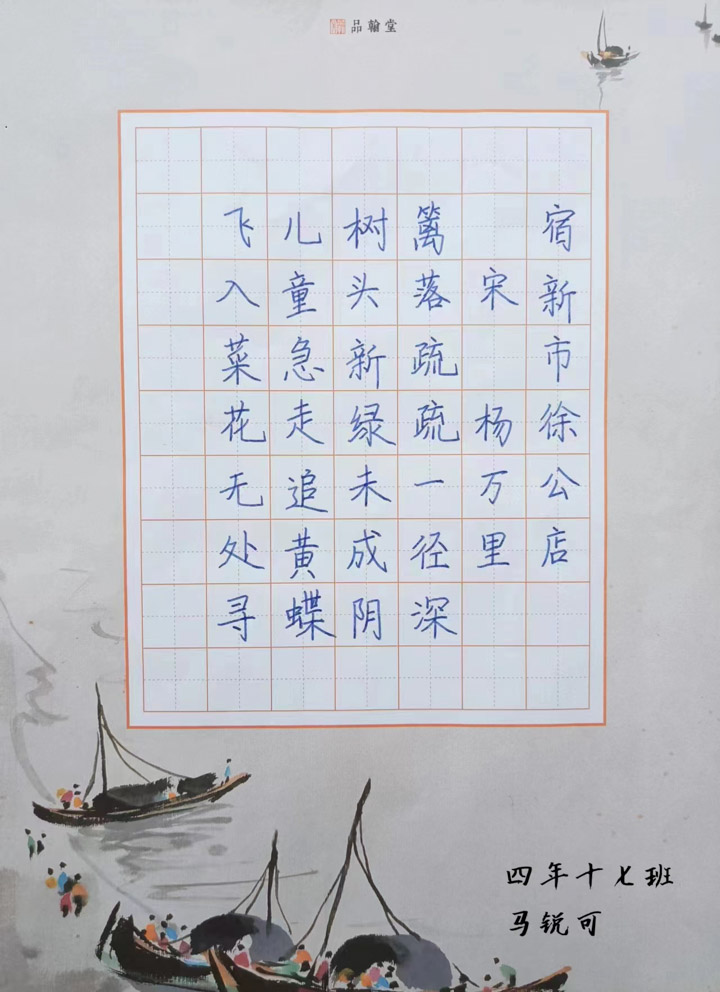 品翰堂
宿新市徐公店
宋 杨万里
篱落疏疏一径深
树头新绿未成阴
儿童急走追黄蝶
飞入菜花无处寻
四年十七班
马锐可